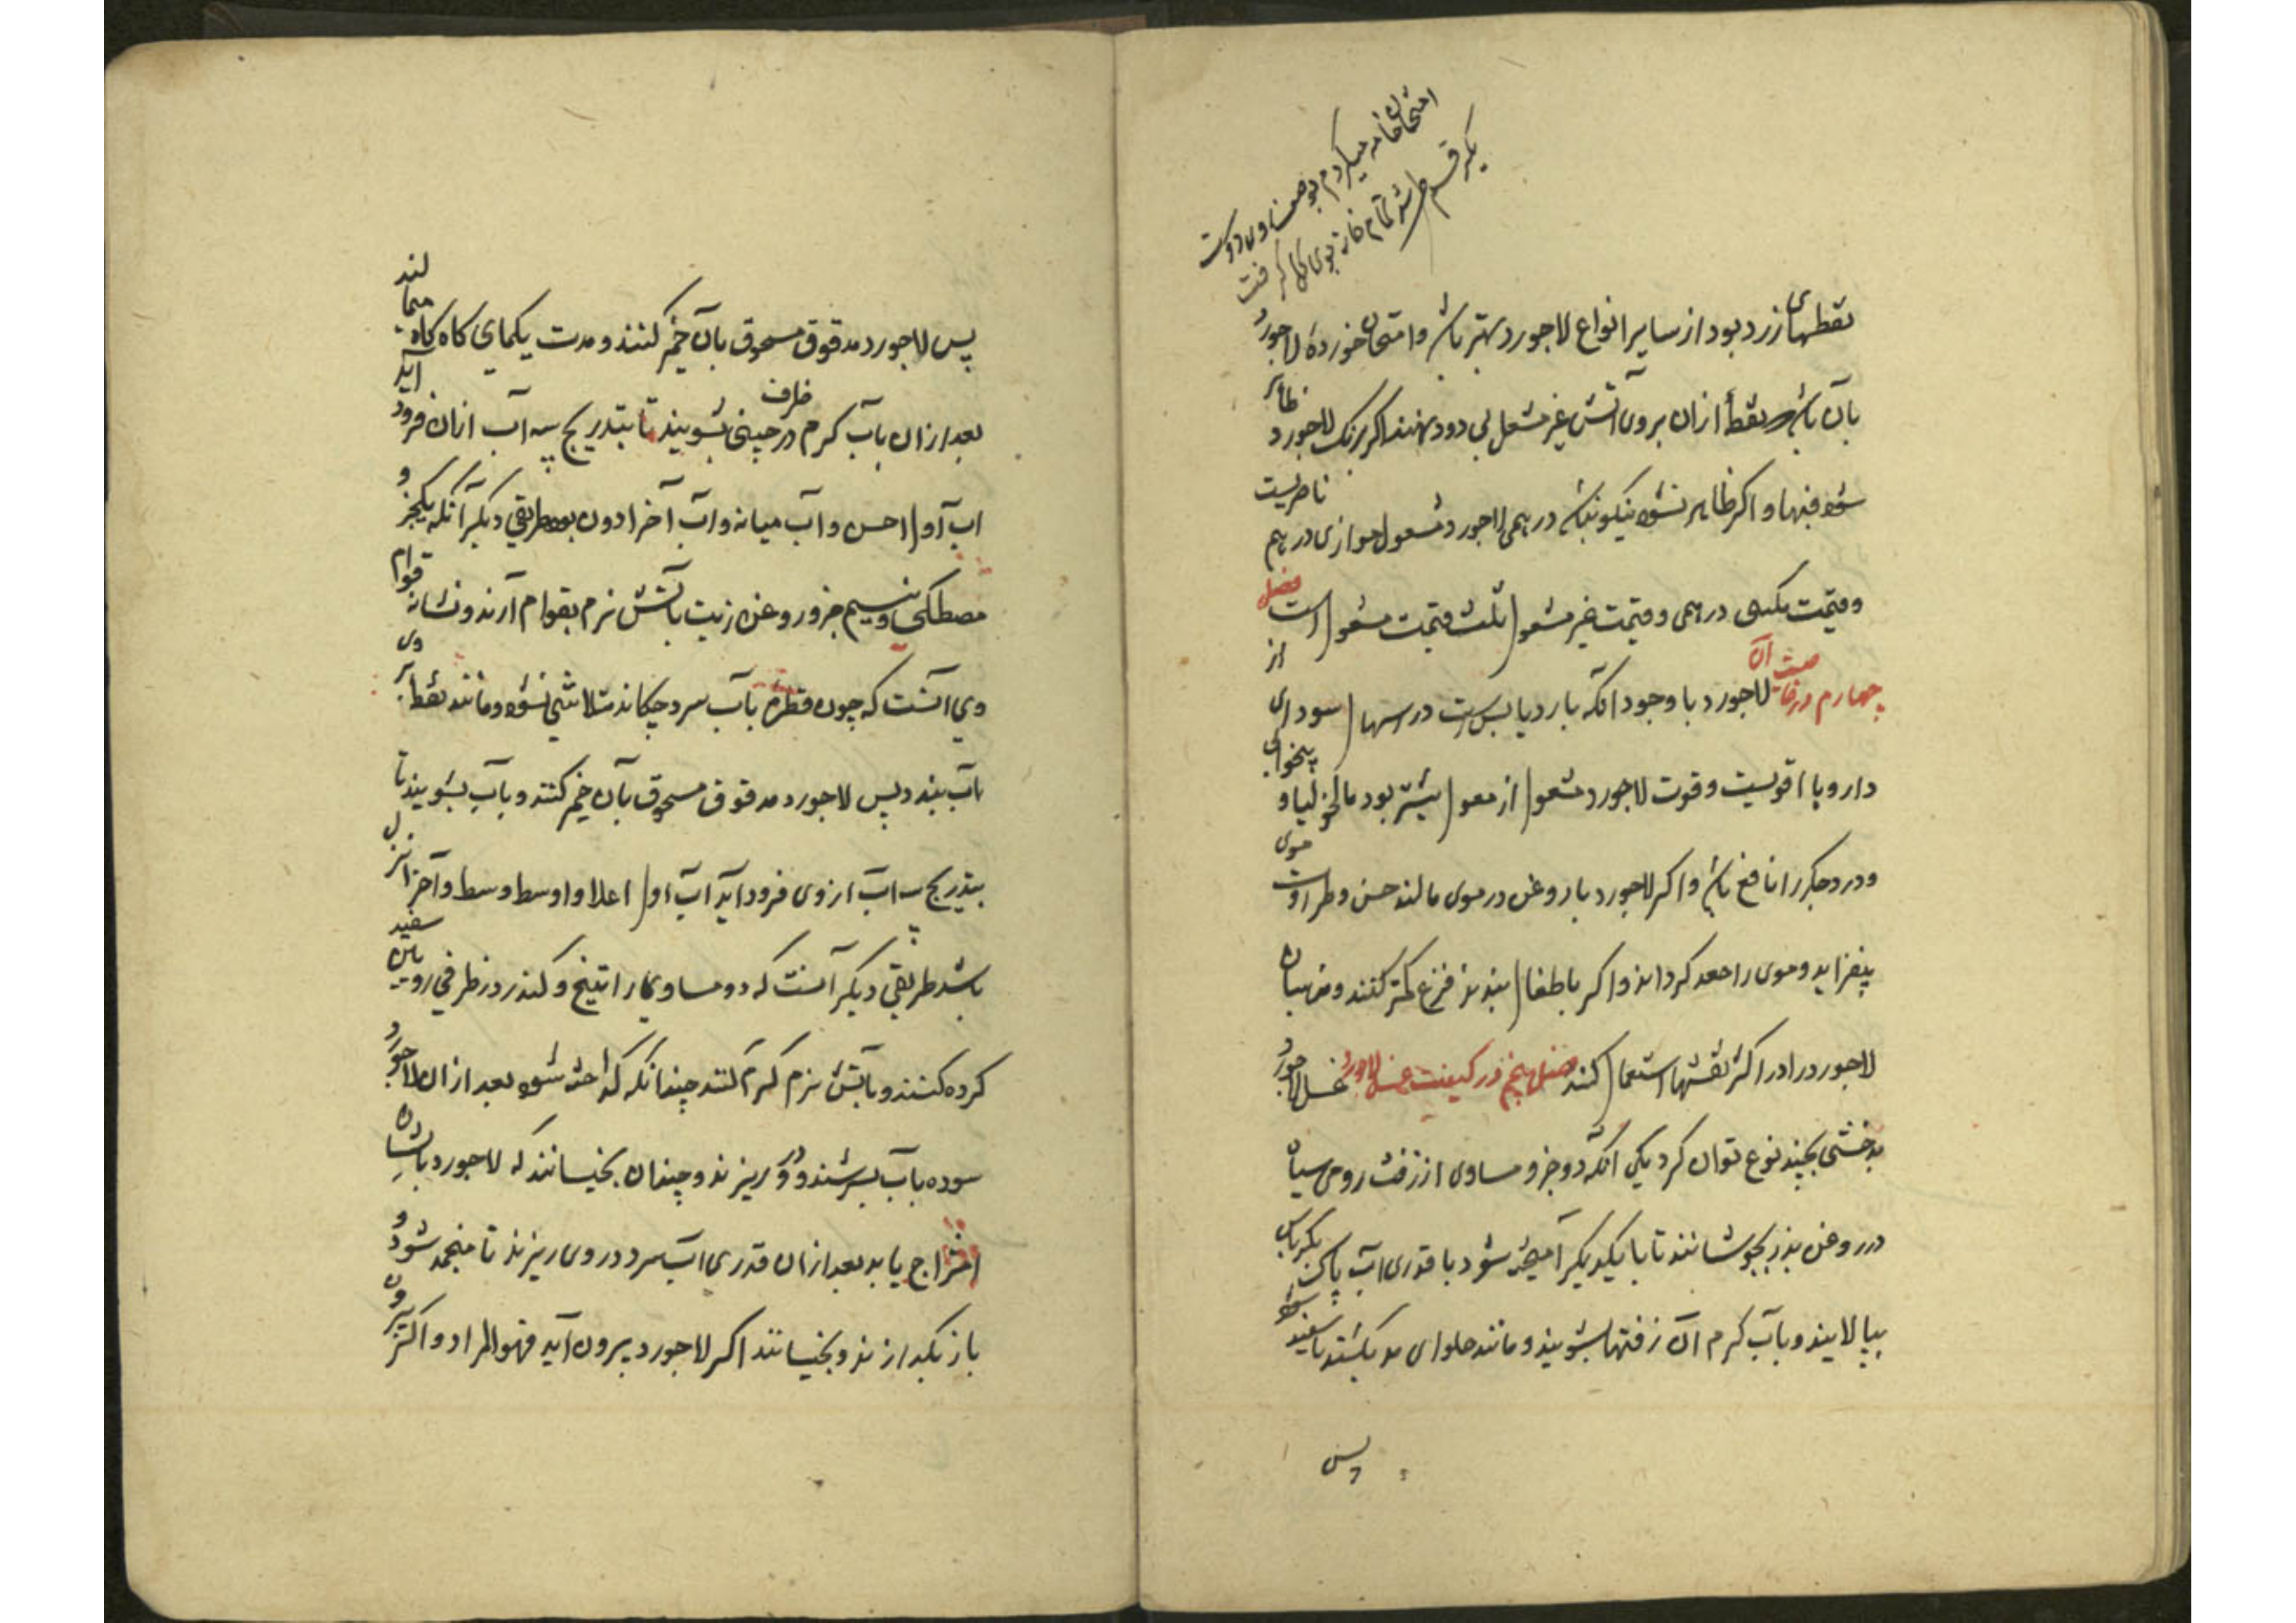 امتحان خامه میکردم بوصف روی دوست
یک رقم بر شد تمام خانه بوی گل گرفت
نقطهای زرد بود از سایر انواع لاجورد بهتر باشد و امتحان خورده لاجورد
بآن باشد نقطهٔ ازان بروی آتش غیر مشعل بی دود نهند اگر برنگ لاجورد ظاهر
شود فبها و اگر ظاهر نشود نیکو نباشد درهمی لاجورد مغسول موازی درهم ناصریست
و قیمت یکمنی درهمی و قیمت غیر مغسول ثلث قیمت مغسول است فصل
چهارم در خاصیت آن لاجورد با وجود انکه بارد یابس است در اسهال سودای از
دارو با اقویست و قوت لاجورد مغسول از مغسول بیشتر بود مالیخولیا و بیخوابی
و درد جگر را نافع باشد و اگر لاجورد با روغن در موی مالند حسن و طراوت موی
بیفزاید و موی را مجعد کرداند و اگر باطفال بندند فزع کمتر کنند و نقاشان
لاجورد را در اکثر نقشها استعمال کنند فصل پنجم در کیفیت غسل لاجورد غسل لاجورد
بدخشی بچند نوع توان کرد یکی انکه دو جزو مساوی از زفت رومی سیاه
در روغن بزر بجوشانند تا با یکدیگر آمیخته شود با قدری آب پاک بکرباس
بپالایند و بآب کرم آن زفتها بشویند و مانند حلوای مد بکشند تا سفید شود
پس
پس لاجورد مدقوق مسحوق بآن خمیر کنند و مدت یکماه کاه کاه میمالند
بعد ازان بآب کرم در ظرف چینی بشویند تا بتدریج سه آب ازان فرود آید
آب اول احسن و آب میانه و آب آخر ادون بود طریقی دیگر آنکه یکجزو
مصطکی و نیم جزو روغن زیت بآتش نرم بقوام آرند و نشانه قوام
وی آنست که چون قطره بآب سرد چکاند متلاشی نشود و مانند نقطهٔ بر روی
آب بندد پس لاجورد مدقوق مسحوق بآن خمیر کنند و بآب بشویند تا
بتدریج سه آب از وی فرود آید آب اول اعلا و اوسط وسط و آخر انزل
باشد طریقی دیگر آنست که دو مساوی راتینج و کندر در ظرفی رویین سفید
کرده کنند و بآتش نرم گرم کنند چندانکه گداخته شود بعد ازان لاجورد
سوده بآب بسرشند و درو ریزند و چندان بخیسانند که لاجورد بایشان
امتزاج یابد بعد ازان قدری آب سرد در وی ریزند تا منجمد شود و
باز بگدازند و بخیسانند اگر لاجورد بیرون آید فهو المراد و اگر نه بیرون